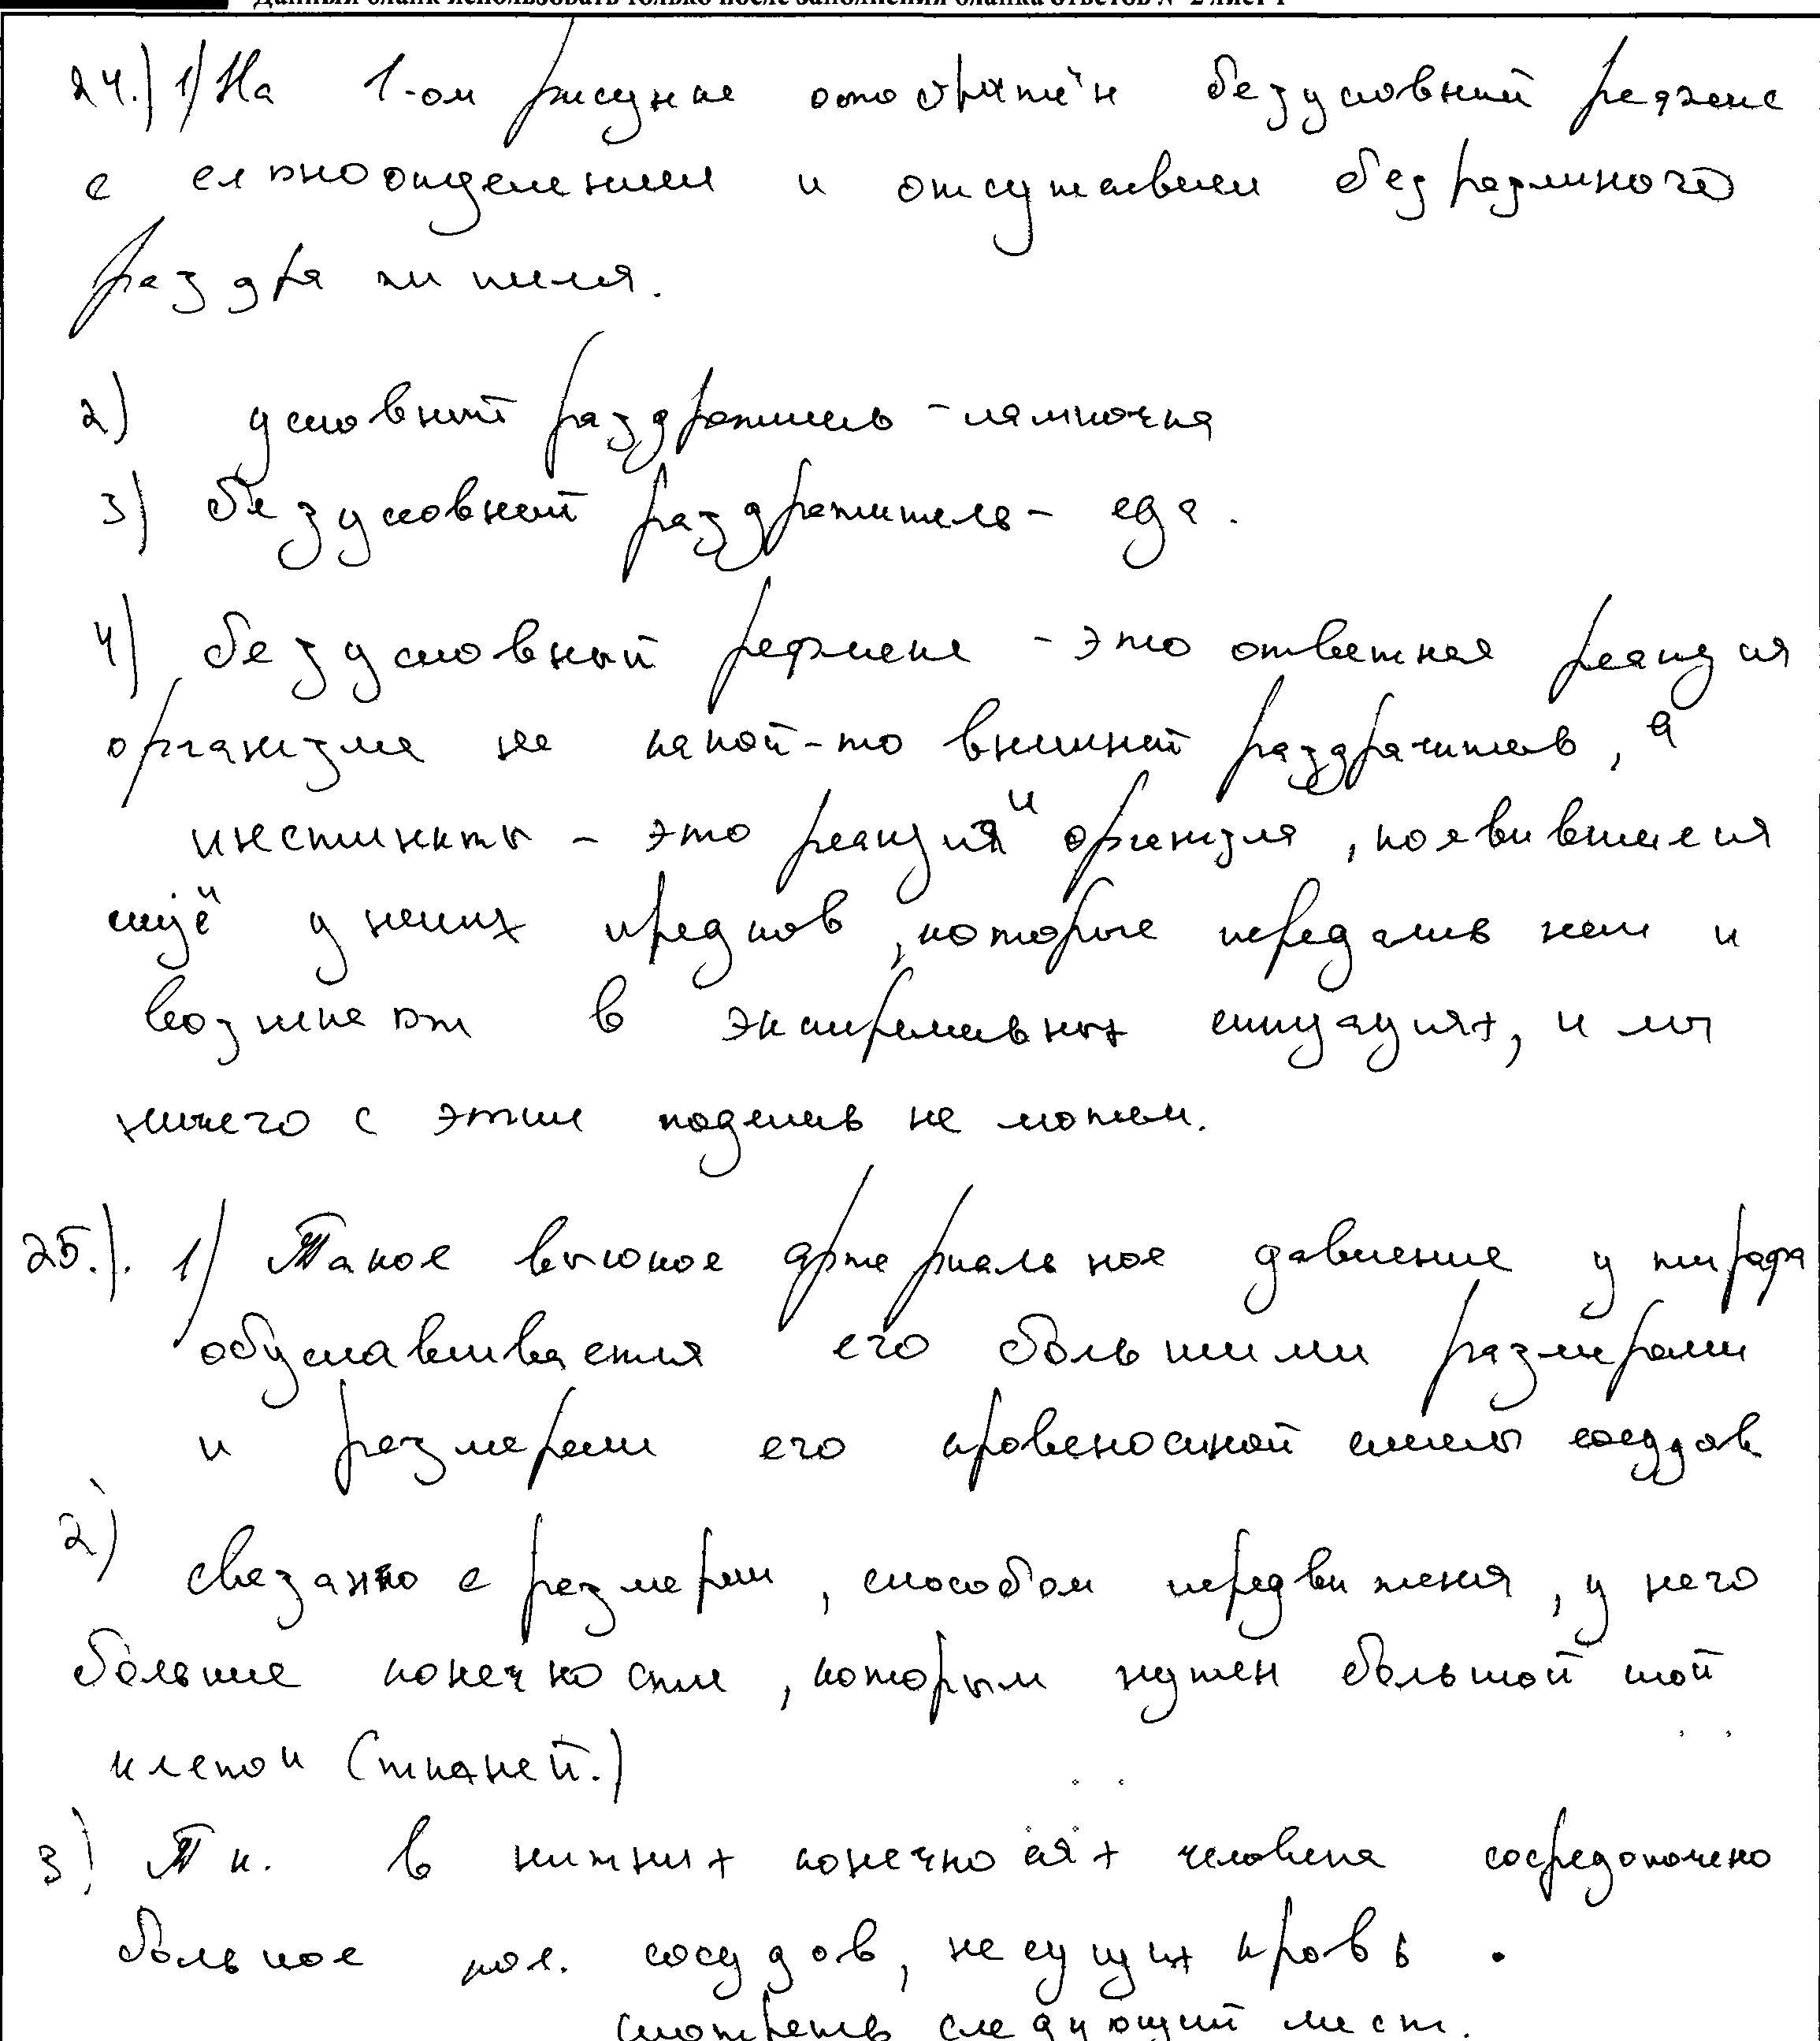 Данный бланк использовать только после заполнения бланка ответов № 2 лист 1
24.) 1) На 1-ом рисунке отображён безусловный рефлекс
с слюноотделением и отсутствием безразличного
раздражителя.
2) условный раздражитель - лампочка
3) безусловный раздражитель - еда.
4) безусловный рефлекс - это ответная реакция
организма на какой-то внешний раздражитель, а
инстинкты - это реакции организма, появившиеся
ещё у наших предков, которые передались нам и
возникают в экстремальных ситуациях, и мы
ничего с этим поделать не можем.
25.). 1) Такое высокое артериальное давление у жирафа
обуславливается его большими размерами
и размерами его кровеносной системы сосудов
2) связанно с размерами, способом передвижения, у него
большие конечности, которым нужен большой
клеток (тканей.)
3) Т к. в нижних конечностях человека сосредоточено
большое кол. сосудов, несущих кровь.
смотреть следующий лист.